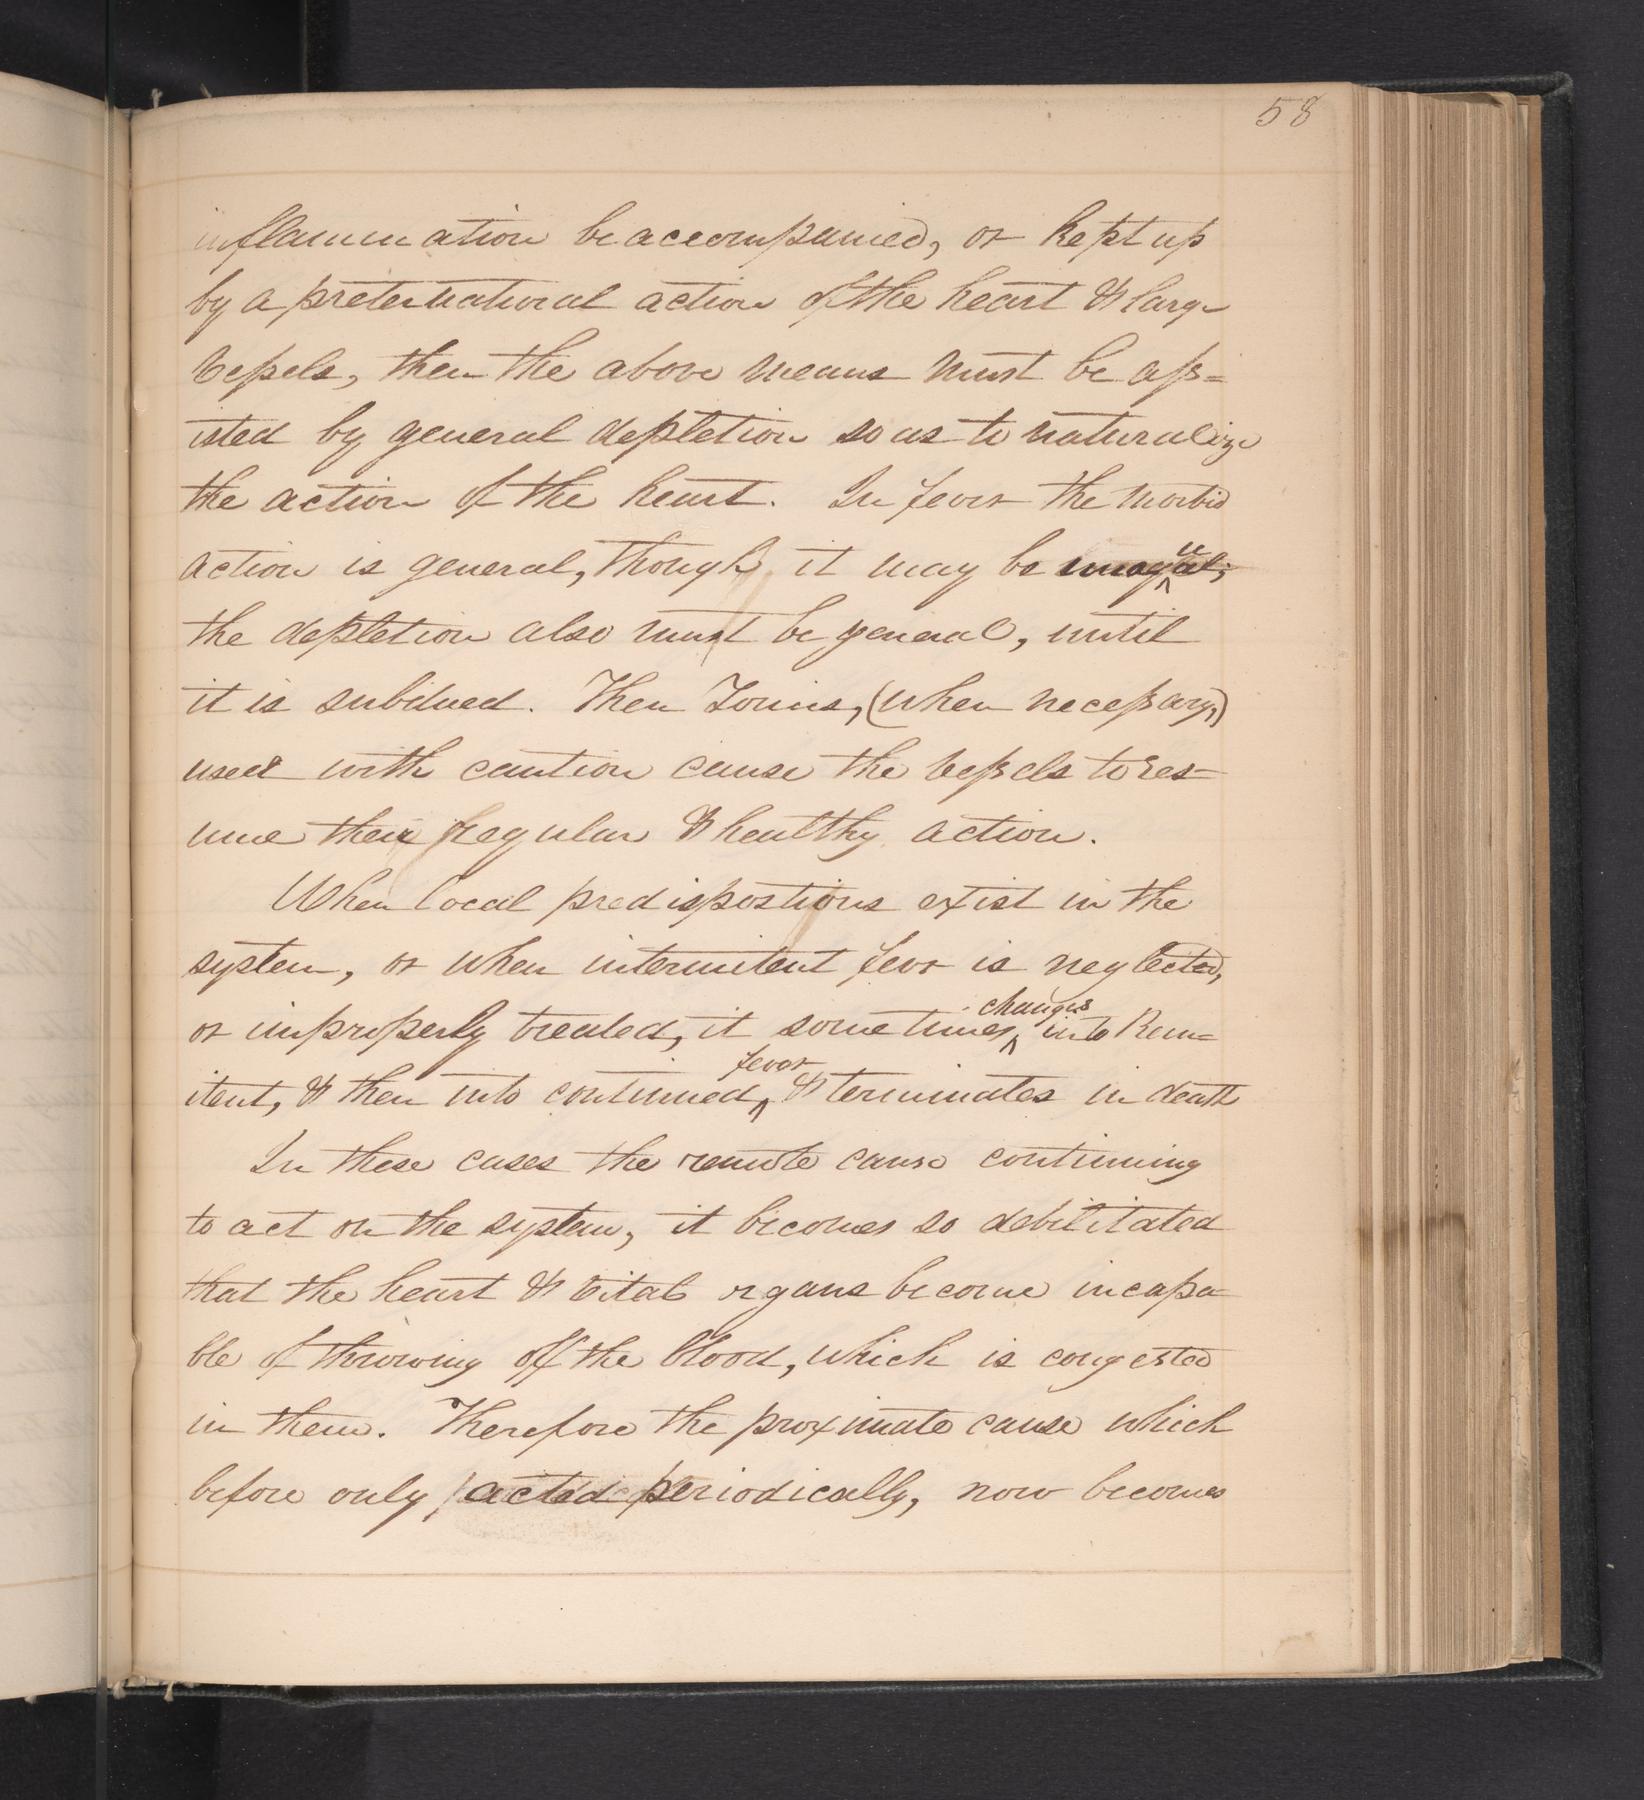 58
inflammation be accompanied, or kept up
by a preternatural action of the heart & large
vessels, then the above means must be ass=
isted by general depletion so as to naturalize
the action of the heart. In fever the morbid
action is general, though it may be unequal;
the depletion also must be general, until
it is subdued. Then Tonics, (when necessary,)
used with caution cause the vessels to res=
ume their regular & healthy action.
When local predispostions exist in the
system, or when intermitent fever is neglected,
or improperly treated, it sometimes changes into Rem=
itent, & then into continued fever & terminates in death
In these cases the remote cause continuing
to act on the system, it becomes so debilitated
that the heart & vital organs become incapa=
ble of throwing off the blood, which is congested
in them. Therefore the proximate cause which
before only acted periodically, now becomes